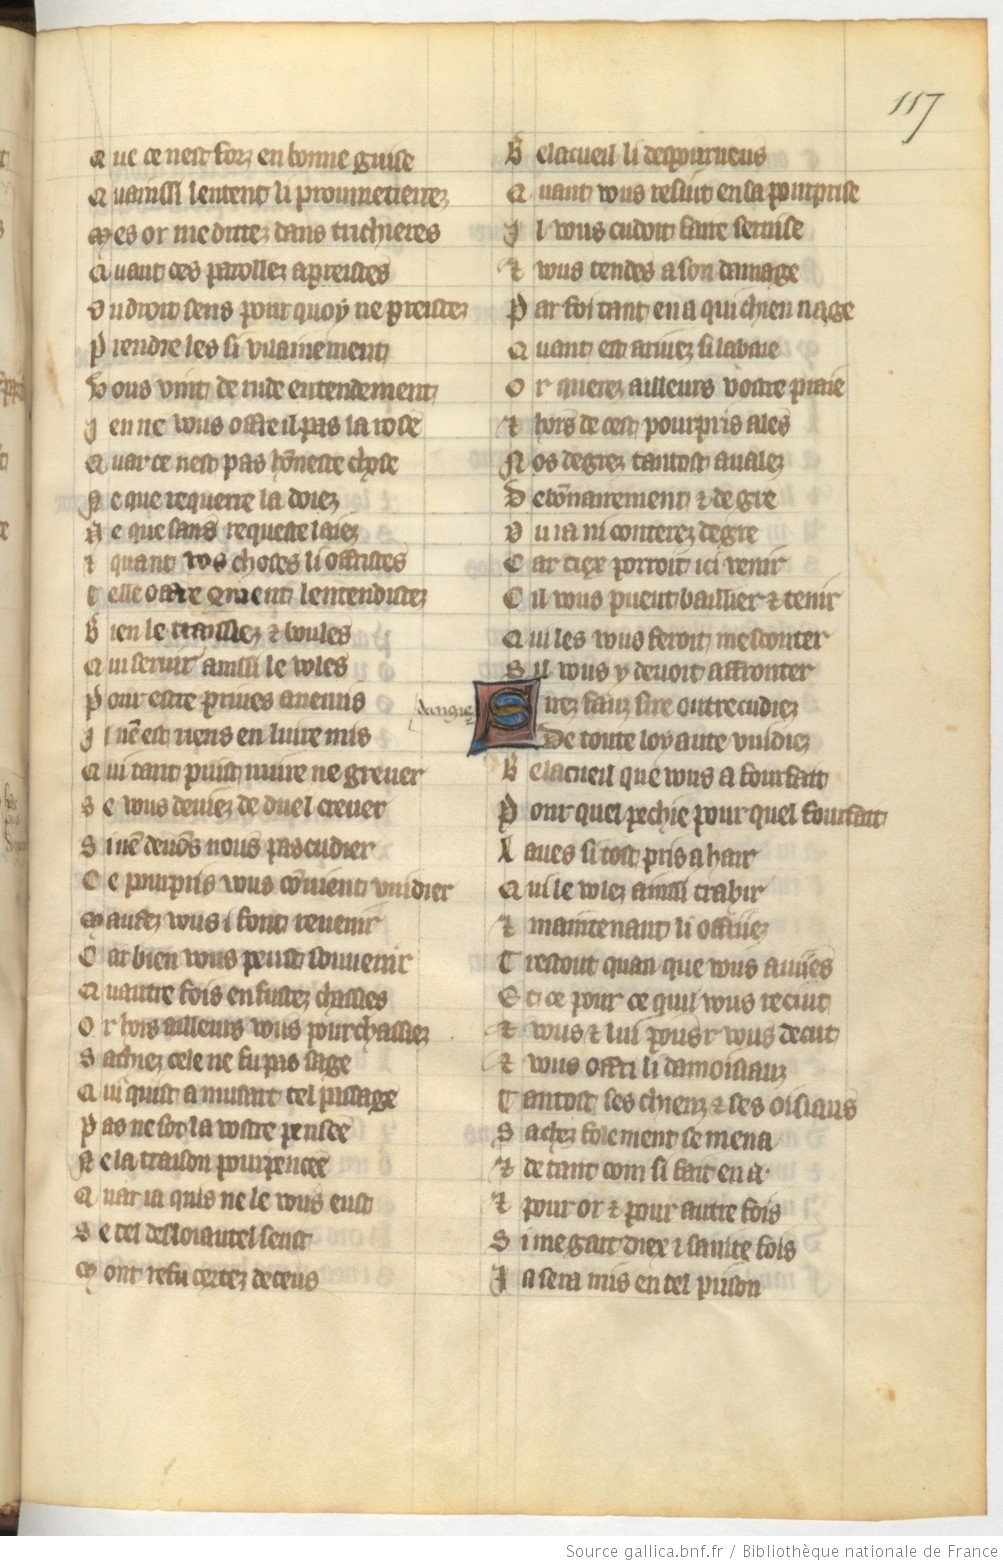 117
Que ce nest forz en bonne guise
Quainssi lentent li prommetierrez
Mes or me dittez dans trichierres
Quant ces parollez apreistes
Oudroit sens pour quoy ne preistez
Prendre les si vilainement
Vous vint de rude entendement
Jen ne vous offre il pas la rose
Quar ce nest pas honneste chose
Ne que requerre la doiez
Ne que sans requeste laiez
Et quant vos choses li offristes
Telle offre comment lentendistez
Bien le truissiez et boules
Qui servir ainssi le voles
Pour estre prives anemis
Il nest riens en luire mis
Qui tant puist nuire ne grever
Se vous deviez de duel crever
Si nen devons nous pas cudier
Ce pourpris vous convient vuidier
Maufez vous i font revenir
Car bien vous peust souvenir
Quautre fois en fustez chasses
Or hors ailleurs vous pourchassiez
Sachiez cele ne fu pas sage
Qui quist a musart tel pissage
Pas ne sot la vostre pensee
Ne la traison pourpencee
Quar ia quis ne le vous eust
Se tel desloiautel seust
Mont refu certez deceus
Belacueil li despourveus
Quant vous resuit en sa pourprise
Il vous cudoit faire servise
Et vous tendes a son damage
Par foi tant en a qui chien nage
Quant est arivez si labaie
Or querez ailleurs vostre praie
Et hors de cest pourpris ales
Nos degrez tantost avalez
Debonnairement et de gre
Ou ia ni conterez degre
Car tiex porroit ici venir
Cil vous puent baillier et tenir
Qui les vous feroit mesconter
Sil vous y devoit affronter
dangie
Sirez fauz sire outrecudiez
De toute loyaute vuidiez
Belacueil que vous a fourfait
Pour quel pechie pour quel fourfait
Laves si tost pris a hair
Qui le volez ainssi trahir
Et maintenant li offriiez
Trestout quan que vous aviies
Est ce pour ce quil vous reciut
Et vous et lui pour vous decut
Et vous offri li damoisiauz
Tantost ses chienz et ses oisiaus
Sachez folement se mena
Et de tant com si fait en a
Et pour or et pour autre fois
Si me gart diex et sainte fois
Ja sera mis en tel prison
Source gallica.bnf.fr / Bibliothèque nationale de France